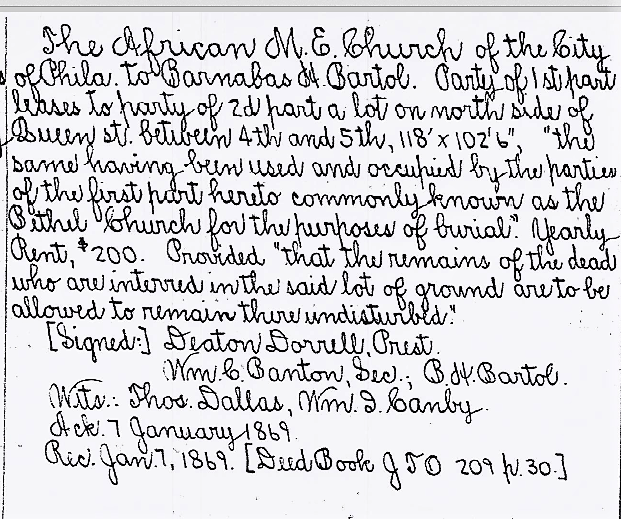 The African M. E. Church of the City
of Phila. to Barnabas H. Bartol. Party of 1st part
leases to party of 2d part a lot on north side of
Queen st. between 4th and 5th, 118' x 102'6", "the
same having been used and occupied by the parties
of the first part hereto commonly known as the
Bethel Church for the purposes of burial". Yearly
Rent, $200. Provided "that the remains of the dead
who are interred in the said lot of ground are to be
allowed to remain there undisturbed."
[Signed:] Deaton Dorrell, Prest.
Wm. C. Banton, Sec.; B. H. Bartol.
Wits.: Thos. Dallas, Wm. I. Canby.
Ack. 7 January 1869.
Rec. Jan. 7, 1869. [Deed Book J T O 209 p. 30.]